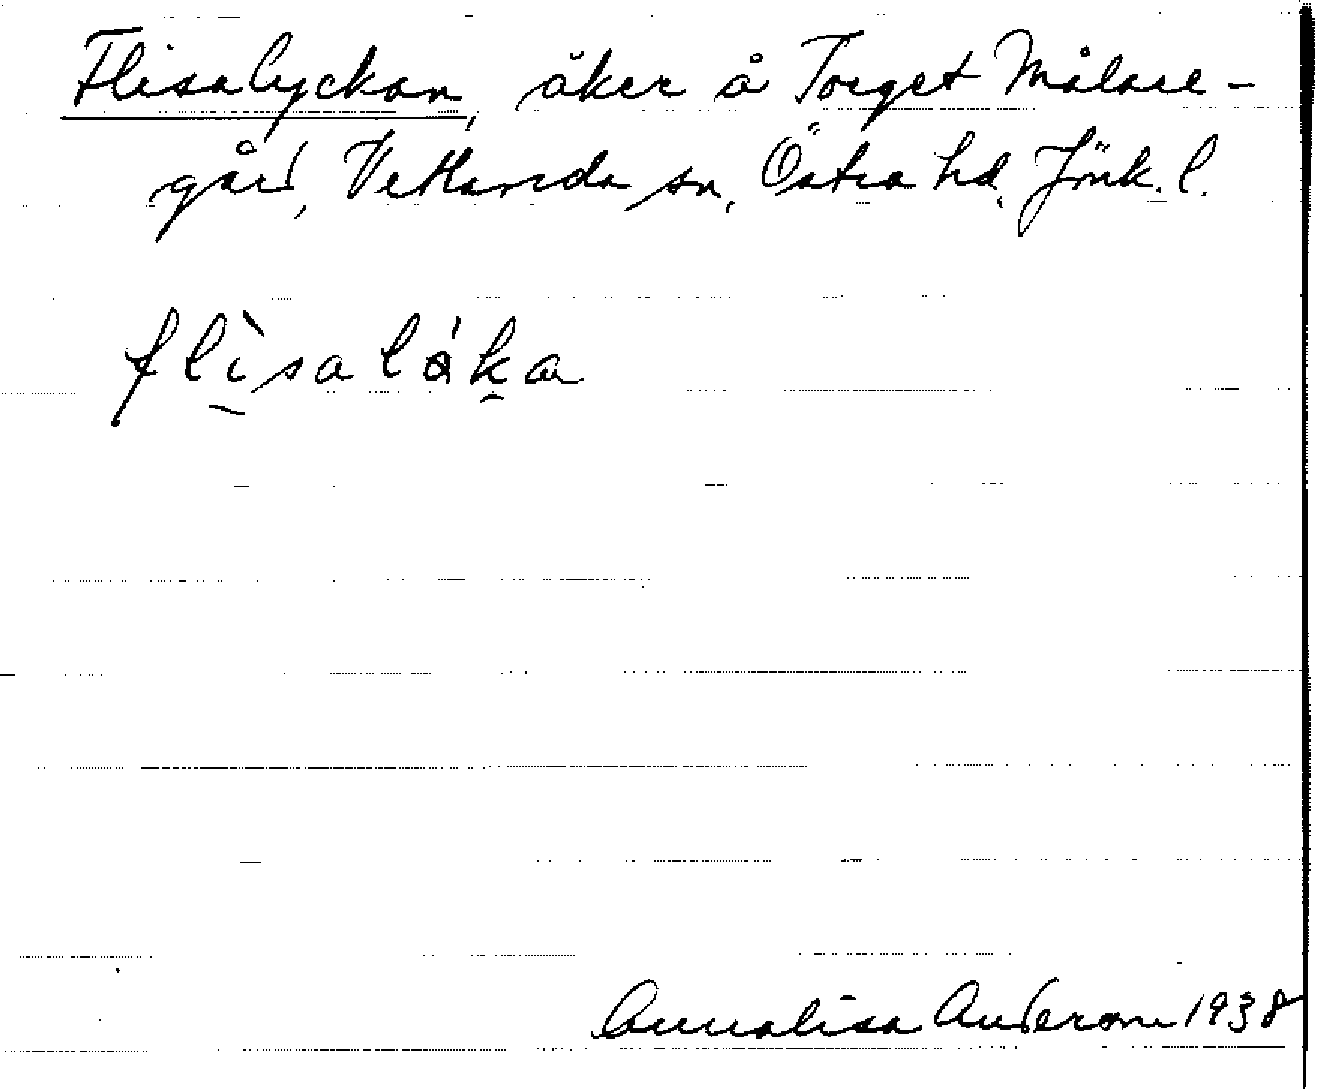 Flisalyckan, åker å Torget Målare-
gård, Vetlanda sn, Östra hd. Jönk. l.
flìsalák̬a
Annalisa Anderson 1938